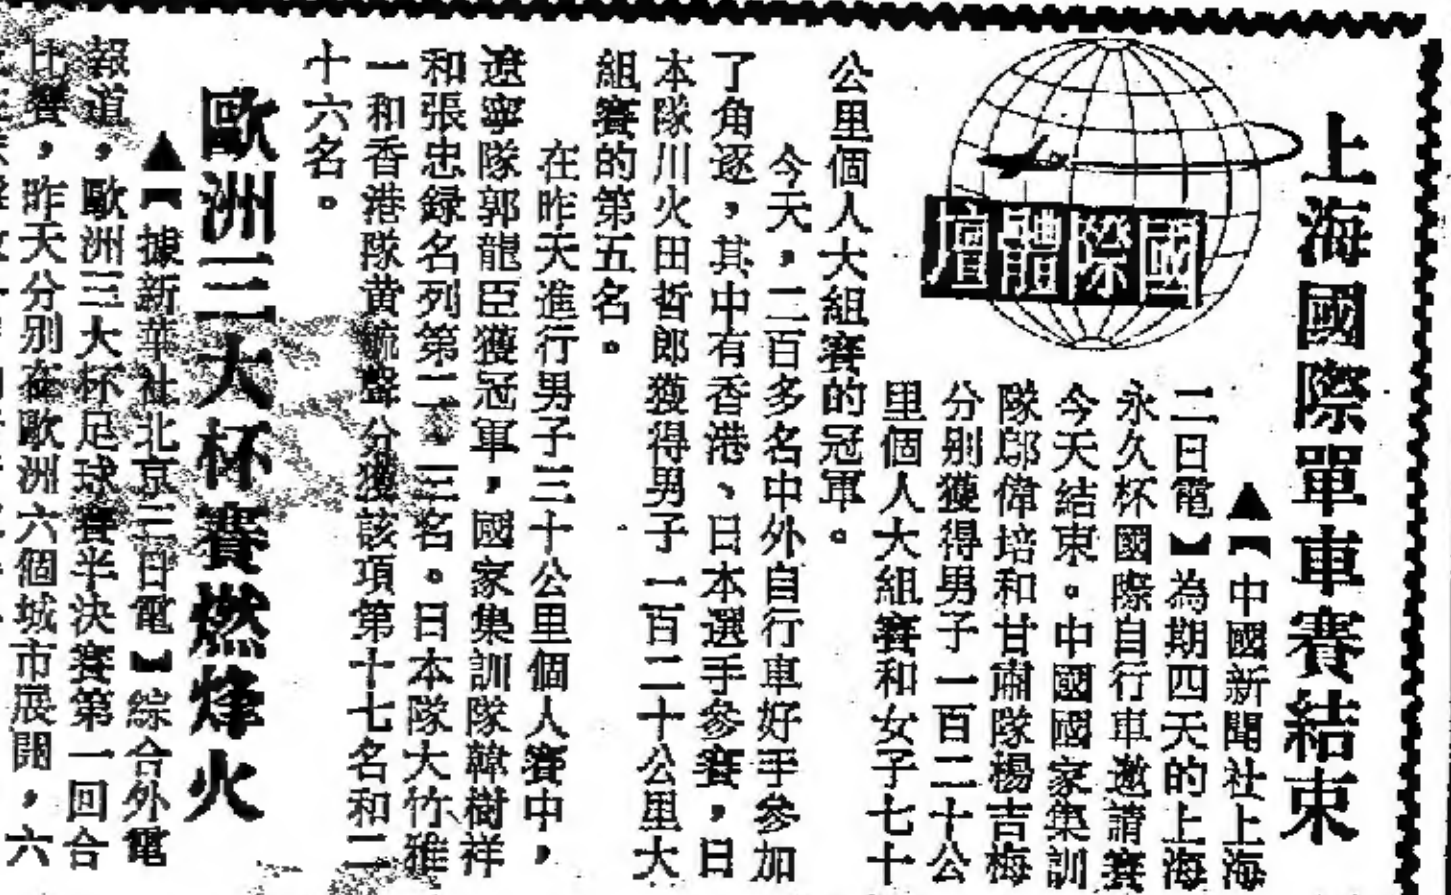 上海國際單車賽結束
國際體壇
▲【中國新聞社上海
二日電】為期四天的上海
永久杯國際自行車邀請賽
今天結束。中國國家集訓
隊鄔偉培和甘肅隊楊吉梅
分别獲得男子一百二十公
里個人大組賽和女子七十
公里個人大組賽的冠軍。
今天，二百多名中外自行車好手參加
了角逐，其中有香港、日本選手參賽，日
本隊川火田哲郎獲得男子一百二十公里大
組賽的第五名。
在昨天進行男子三十公里個人賽中，
遼寧隊郭龍臣獲冠軍，國家集訓隊韓樹祥
和張忠録名列第二、三名。日本隊大竹雅
一和香港隊黄 聲分獲該項第十七名和二
十六名。
歐洲三大杯賽燃烽火
▲【據新華社北京三日電】綜合外電
報道，歐洲三大杯足球賽半決賽第一回合
比賽，昨天分別在歐洲六個城市展開，六